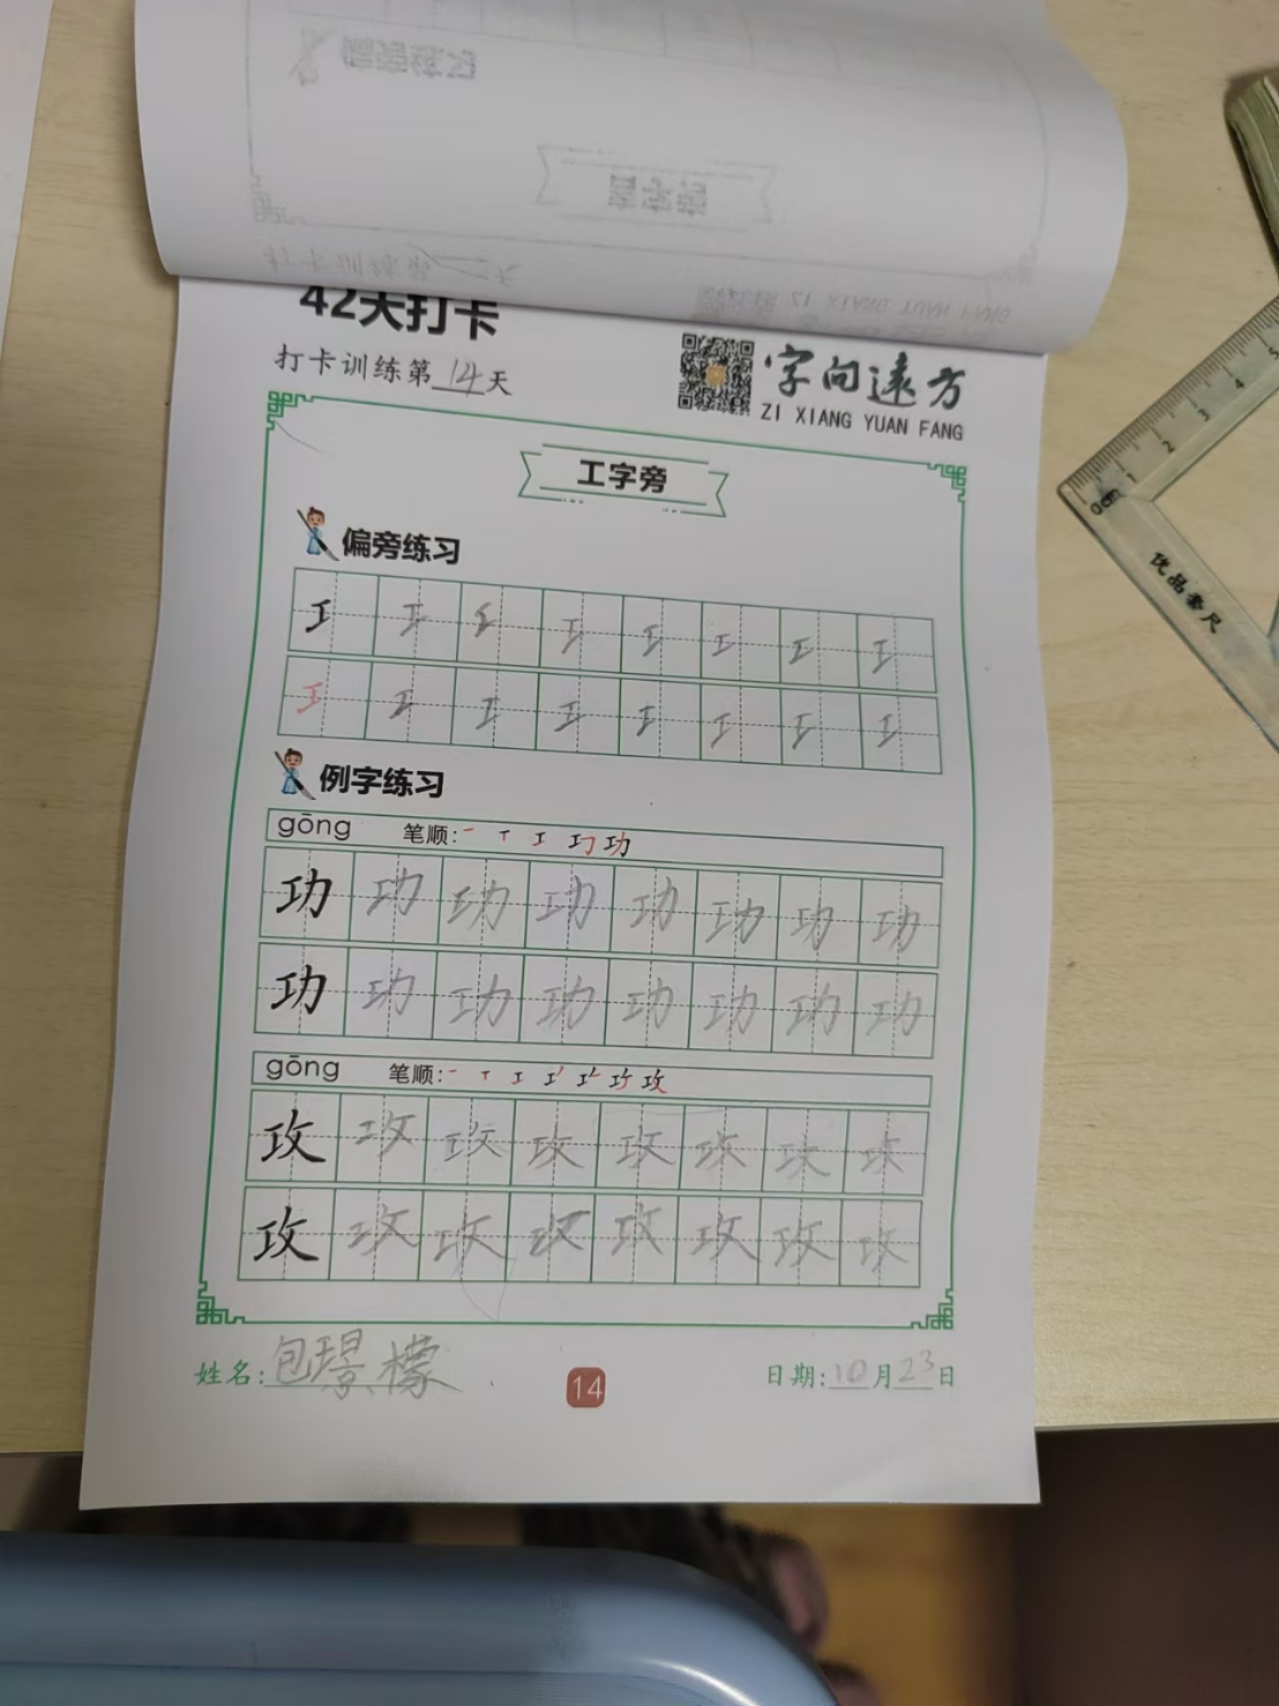 42天打卡
打卡训练第14天
字向远方
ZI XIANG YUAN FANG
工字旁
偏旁练习
工 工 工 工 工 工 工 工
工 工 工 工 工 工 工 工
例字练习
gōng 笔顺: 一 丅 工 巧 功
功 功 功 功 功 功 功 功
功 功 功 功 功 功 功 功
gōng 笔顺: 一 丅 工 攻
攻 攻 攻 攻 攻 攻 攻 攻
攻 攻 攻 攻 攻 攻 攻 攻
姓名:包璟檬
14
日期:10月23日
0cm 1 2 3 4 5
优品套尺